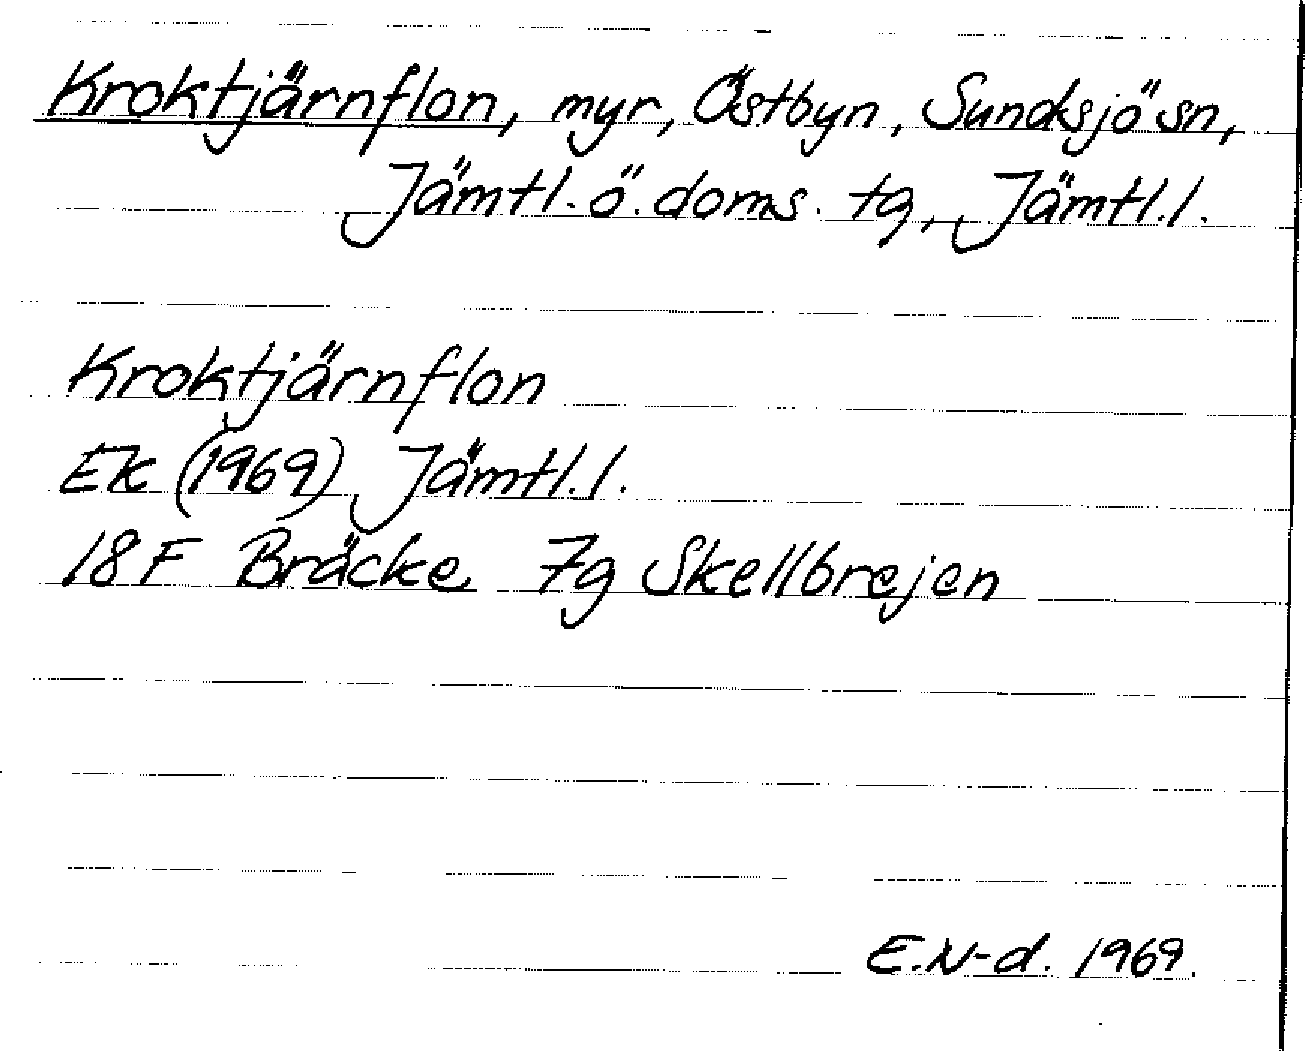 Kroktjärnflon, myr, Östbyn, Sundsjö sn,
Jämtl. ö. doms. tg, Jämtl. l.
Kroktjärnflon
EK (1969) Jämtl. l.
18 F Bräcke 7g Skellbrejen
E.N-d. 1969.